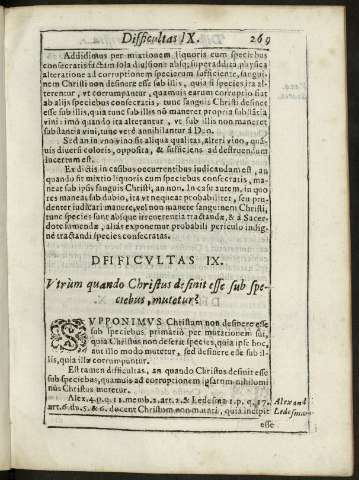 Difficultas IX. 269
Addidimus per mixtionem liquoris cum speciebus
consecratis factam sola diuisione absq; superaddita physica
alteratione ad corruptionem specierum sufficiente, sangui-
nem Christi non desinere esse sub illis, quia si species ita al-
terentur, vt corrumpantur, quamuis earum corruptio fiat
ab alijs speciebus consecratis, tunc sanguis Christi desinet
esse sub illis, quia tunc sub illis nō maneret propria substātia
vini: imò quando ita alterantur, vt sub illis non maneret
substantia vini, tunc verè annihilantur à Deo.
Sed an in vno vino sit aliqua qualitas, alteri vino, quā-
uis diuersi coloris, opposita, & sufficiens ad destruendum
incertum est.
Ex dictis in casibus occurrentibus iudicandum est, an
quando fit mixtio liquoris cum speciebus consecratis, ma-
neat sub ipsis sanguis Christi, an non. In casu autem, in quo
res maneat sub dubio, ita vt nequeat probabiliter, seu pru-
denter iudicari manere, vel non manere sanguinem Christi,
tunc species sunt absque irreuerentia tractandæ, & à Sacer-
dote sumendæ, aliàs exponemur probabili periculo indig-
nè tractandi species consecratas.
DFIFICVLTAS IX.
Vtrùm quando Christus desinit esse sub spe-
ciebus, mutetur?
SVPPONIMVS Christum non desinere esse
sub speciebus, primariò per mutationem sui,
quia Christus non deserit species, quia ipse hoc,
aut illo modo mutetur, sed desinere esse sub il-
lis, quia illæ corrumpuntur.
Est tamen difficultas, an quando Christus desinit esse
sub speciebus, quamuis ad corruptionem ipsarum nihilomi
nùs Christus mutetur.
Alex. 4. p. q. 11. memb. 2. art. 2. & Ledesma 1. p. q. 17.
art. 6. du. 5. & 6. docent Christum non mutari, quia incipit
Alex and
Ledesma
esse